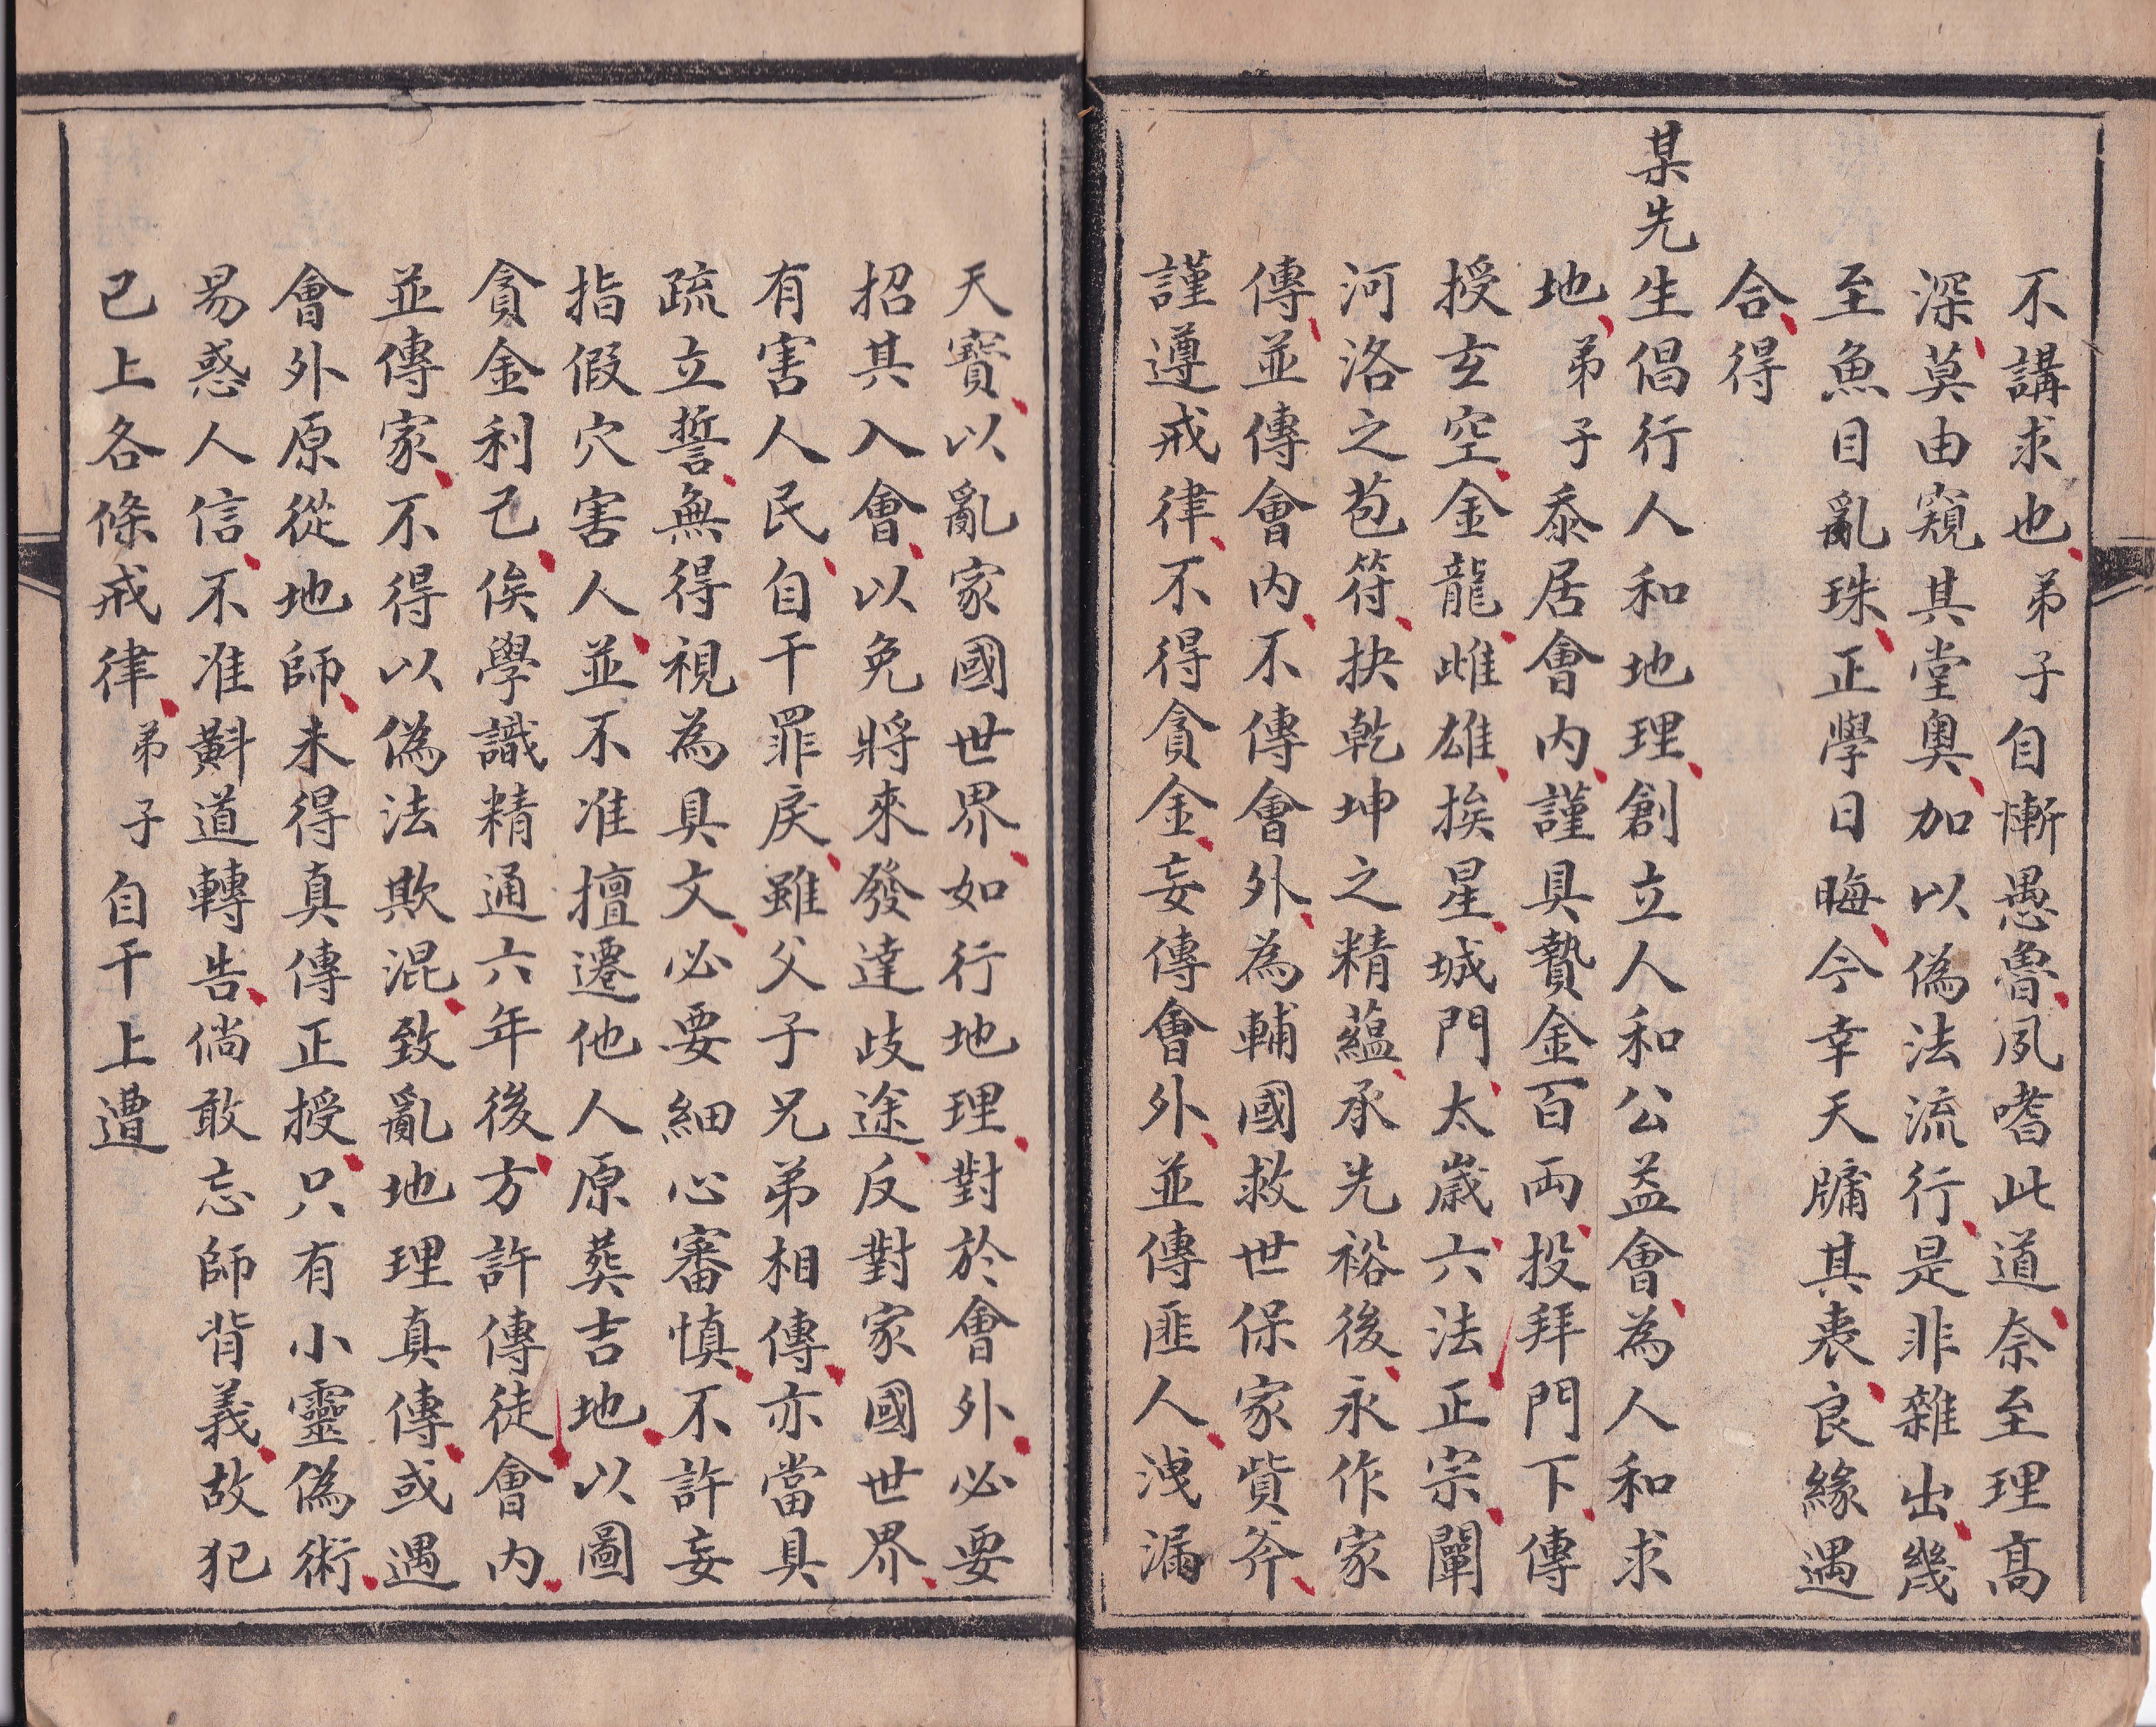 不講求也弟子自慚愚魯夙嗜此道奈至理高
深莫由窺其堂奧加以偽法流行是非雜出幾
至魚目亂珠正學日晦今幸天牖其衷良緣遇
合得
某先生倡行人和地理創立人和公益會為人和求
地弟子忝居會內謹具贄金百両投拜門下傳
授玄空金龍雌雄挨星城門太歲六法正宗闡
河洛之苞符抉乾坤之精蘊承先裕後永作家
傳並傳會內不傳會外為輔國救世保家貲斧
謹遵戒律不得貪金妄傳會外並傳匪人洩漏
天寶以亂家國世界如行地理對於會外必要
招其入會以免將來發達歧途反對家國世界
有害人民自干罪戾雖父子兄弟相傳亦當具
疏立誓無得視為具文必要細心審慎不許妄
指假穴害人並不准擅遷他人原葬吉地以圖
貪金利己俟學識精通六年後方許傳徒會內
並傳家不得以偽法欺混致亂地理真傳或遇
會外原從地師未得真傳正授只有小靈偽術
易惑人信不准斢道轉告倘敢忘師背義故犯
已上各條戒律弟子自干上遭